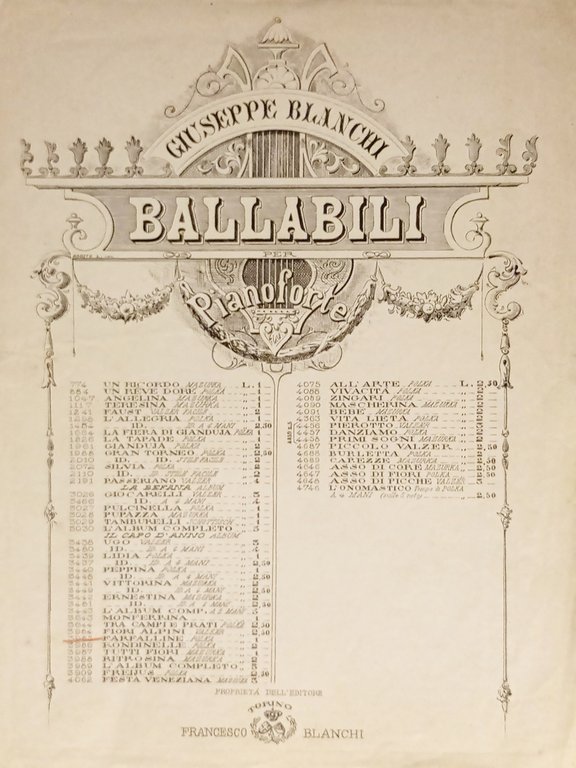 GIUSEPPE BLANCHI
BALLABILI
PER
Pianoforte
774 UN RICORDO MAZURKA L. 1
884 UN RÊVE DORÉ POLKA 1
1047 ANGELINA MAZURKA 1
1117 TERESINA MAZURKA 1
1241 FAUST VALZER FACILE 2
L'ALLEGRIA POLKA 1
ID. ID. A 4 MANI 2,50
LA FIERA DI GIANDUJA POLKA 1
1828 LA TAPADE POLKA
GIANDUJA POLKA
1988 GRAN TORNEO POLKA
ID. ID. STILE FACILE
2072 SILVIA POLKA 2
2110 ID. ID. STILE FACILE
2191 PASSERIANO VALZER 4
LA BEFANA ALBUM
3026 GIOCARELLI VALZER 3
ID. A 4 MANI
3027 PULCINELLA POLKA 1
3028 PUPAZZA MAZURKA
3029 TAMBURELLI SCHOTTISCH 1
3030 L'ALBUM COMPLETO 5
IL CAPO D'ANNO ALBUM
3438 UGO VALZER 3
3480 ID. ID. A 4 MANI 4
3439 LIDIA POLKA 1
3437 ID. ID. A 4 MANI 2,50
3440 PEPPINA POLKA
3448 ID. ID. A 4 MANI 2,50
3441 VITTORINA MAZURKA 2
ID. ID. A 4 MANI 2,50
ERNESTINA MAZURKA 2
3481 ID. ID. A 4 MANI 2,50
3443 L'ALBUM COMP. A 2 MANI 5
3643 MONFERRINA 1
3644 TRA CAMPI E PRATI POLKA 2,50
FIORI ALPINI VALZER 2,50
FARFALLINE POLKA
3986 RONDINELLE POLKA
3987 TUTTI FIORI MAZURKA 1
3988 RITROSINA MAZURKA 2
3989 L'ALBUM COMPLETO
3909 FREJUS POLKA 2,50
4062 FESTA VENEZIANA MAZURKA 3
4075 ALL'ARTE POLKA L. 2,50
4088 VIVACITÀ POLKA
4089 ZINGARI POLKA
4090 MASCHERINA MAZURKA
4091 BEBÈ MAZURKA
4363 VITA LIETA POLKA
4456 PIEROTTO VALZER
4457 DANZIAMO POLKA
4458 PRIMI SOGNI MAZURKA
4687 PICCOLO VALZER 2,50
4688 BURLETTA POLKA
4689 CAREZZE MAZURKA 2,50
4646 ASSO DI CORE MAZURKA 2,50
4647 ASSO DI FIORI POLKA 2,50
4648 ASSO DI PICCHE VALZER 2
4746 L'ONOMASTICO Tempo di POLKA
A 4 MANI 2,50
PROPRIETÀ DELL'EDITORE
TORINO
FRANCESCO BLANCHI